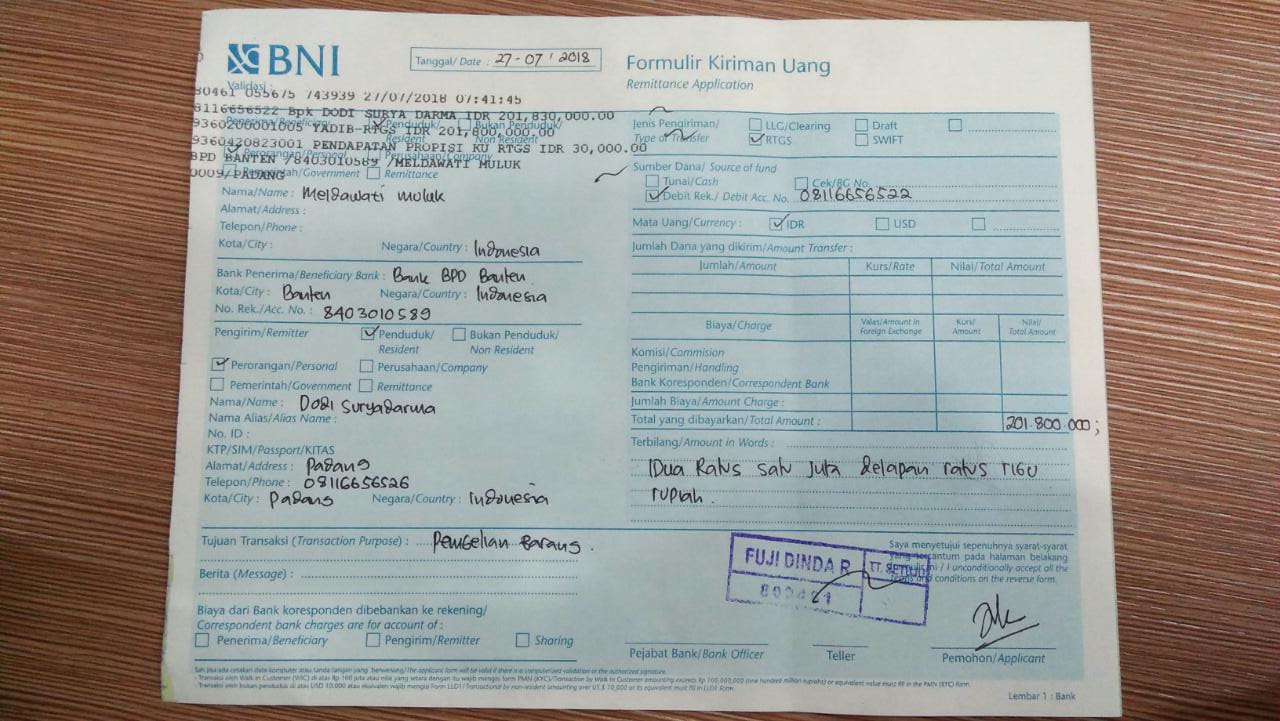 BNI
Tanggal/ Date : 27-07/2018
Formulir Kiriman Uang
Remittance Application
Validasi
80461 055675 743939 27/07/2018 07:41:45
8116656522 Bpk DODI SURYA DARMA IDR 201,830,000.00
9360200001005 YADIB-RTGS IDR 201,800,000.00
9360420823001 PENDAPATAN PROPISI KU RTGS IDR 30,000.00
BPD BANTEN /8403010589 /MELDAWATI MULUK
0009/PADANG
Penerima/Beneficiary Penduduk/ Bukan Penduduk/
Resident Non Resident
Perorangan/Personal Perusahaan/Company
Pemerintah/Government Remittance
Nama/Name : Meldawati muluk
Alamat/Address :
Telepon/Phone :
Kota/City : Negara/Country : Indonesia
Bank Penerima/Beneficiary Bank : Bank BPD Banten
Kota/City : Banten Negara/Country : Indonesia
No. Rek./Acc. No. : 8403010589
Pengirim/Remitter Penduduk/ Bukan Penduduk/
Resident Non Resident
Perorangan/Personal Perusahaan/Company
Pemerintah/Government Remittance
Nama/Name : Dodi Suryadarma
Nama Alias/Alias Name :
No. ID :
KTP/SIM/Passport/KITAS
Alamat/Address : Padang
Telepon/Phone : 08116656526
Kota/City : Padang Negara/Country : Indonesia
Tujuan Transaksi (Transaction Purpose) : Pembelian Barang.
Berita (Message) :
Biaya dari Bank koresponden dibebankan ke rekening/
Correspondent bank charges are for account of :
Penerima/Beneficiary Pengirim/Remitter Sharing
Jenis Pengiriman/ LLG/Clearing Draft
Type of Transfer RTGS SWIFT
Sumber Dana/ Source of fund
Tunai/Cash Cek/BG No.
Debit Rek./ Debit Acc. No. 08116656522
Mata Uang/Currency : IDR USD
Jumlah Dana yang dikirim/Amount Transfer :
Jumlah/Amount Kurs/Rate Nilai/Total Amount
Biaya/Charge Valas/Amount in Foreign Exchange Kurs/Amount Nilai/Total Amount
Komisi/Commision
Pengiriman/Handling
Bank Koresponden/Correspondent Bank
Jumlah Biaya/Amount Charge :
Total yang dibayarkan/Total Amount : 201.800.000;
Terbilang/Amount in Words :
Dua Ratus satu Juta delapan ratus ribu
rupiah.
Saya menyetujui sepenuhnya syarat-syarat
yang tercantum pada halaman belakang
formulir ini / I unconditionally accept all the
Terms and conditions on the reverse form.
FUJI DINDA R
TT.
Pejabat Bank/Bank Officer Teller Pemohon/Applicant
Sah jika ada cetakan data komputer atau tanda tangan yang berwenang/The applicant form will be valid if there is a computerized validation or the authorized signature.
- Transaksi oleh Walk in Customer (WIC) di atas Rp 100 juta atau nilai yang setara dengan itu wajib mengisi form PMN (KYC)/Transaction by Walk In Customer amounting exceeds Rp 100,000,000 (one hundred million rupiahs) or equivalent value must fill in the PMN (KYC) form.
- Transaksi oleh bukan penduduk di atas USD 10.000 atau ekuivalen wajib mengisi Form LLD1/Transactional by non-resident amounting over US $ 10,000 or its equivalent must fill in LLD1 Form.
Lembar 1 : Bank